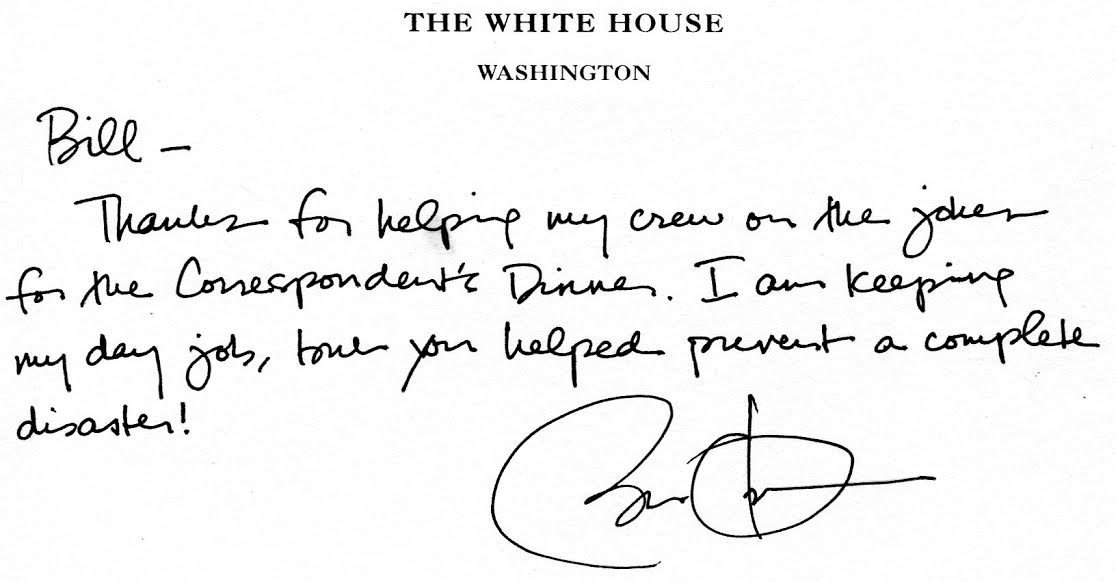 THE WHITE HOUSE
WASHINGTON
Bill –
Thanks for helping my crew on the jokes
for the Correspondent's Dinner. I am keeping
my day job, but you helped prevent a complete
disaster!